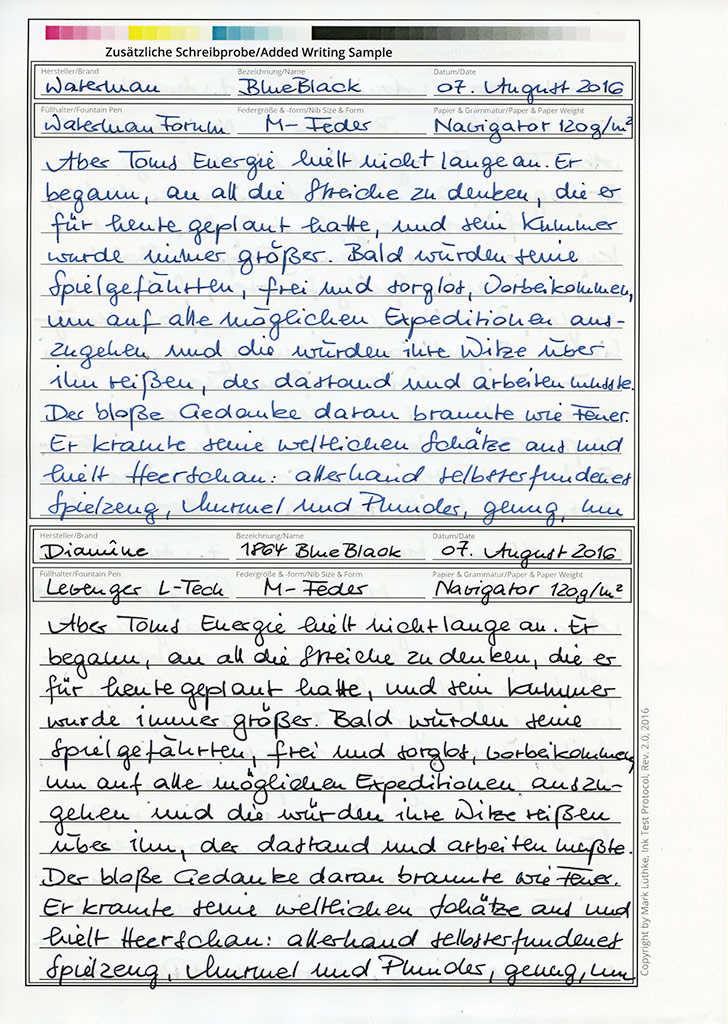 Zusätzliche Schreibprobe/Added Writing Sample
Hersteller/Brand Bezeichnung/Name Datum/Date
Waterman BlueBlack 07. August 2016
Füllhalter/Fountain Pen Federgröße & -form/Nib Size & Form Papier & Grammatur/Paper & Paper Weight
Waterman Forum M-Feder Navigator 120g/m²
Aber Toms Energie hielt nicht lange an. Er
begann, an all die Streiche zu denken, die er
für heute geplant hatte, und sein Kummer
wurde immer größer. Bald würden seine
Spielgefährten, frei und sorglos, vorbeikommen,
um auf alle möglichen Expeditionen aus-
zugehen und die würden ihre Witze über
ihn reißen, der dastand und arbeiten musste.
Der bloße Gedanke daran brannte wie Feuer.
Er kramte seine weltlichen Schätze aus und
hielt Heerschau: allerhand selbsterfundenes
Spielzeug, Murmel und Plunder, genug, um
Hersteller/Brand Bezeichnung/Name Datum/Date
Diamine 1864 BlueBlack 07. August 2016
Füllhalter/Fountain Pen Federgröße & -form/Nib Size & Form Papier & Grammatur/Paper & Paper Weight
Levenger L-Tech M-Feder Navigator 120g/m²
Aber Toms Energie hielt nicht lange an. Er
begann, an all die Streiche zu denken, die er
für heute geplant hatte, und sein Kummer
wurde immer größer. Bald würden seine
Spielgefährten, frei und sorglos, vorbeikommen,
um auf alle möglichen Expeditionen auszu-
gehen und die würden ihre Witze reißen
über ihn, der dastand und arbeiten mußte.
Der bloße Gedanke daran brannte wie Feuer.
Er kramte seine weltlichen Schätze aus und
hielt Heerschau: allerhand selbsterfundenes
Spielzeug, Murmel und Plunder, genug, um
Copyright by Mark Luthke, Ink Test Protocol, Rev. 2.0, 2016